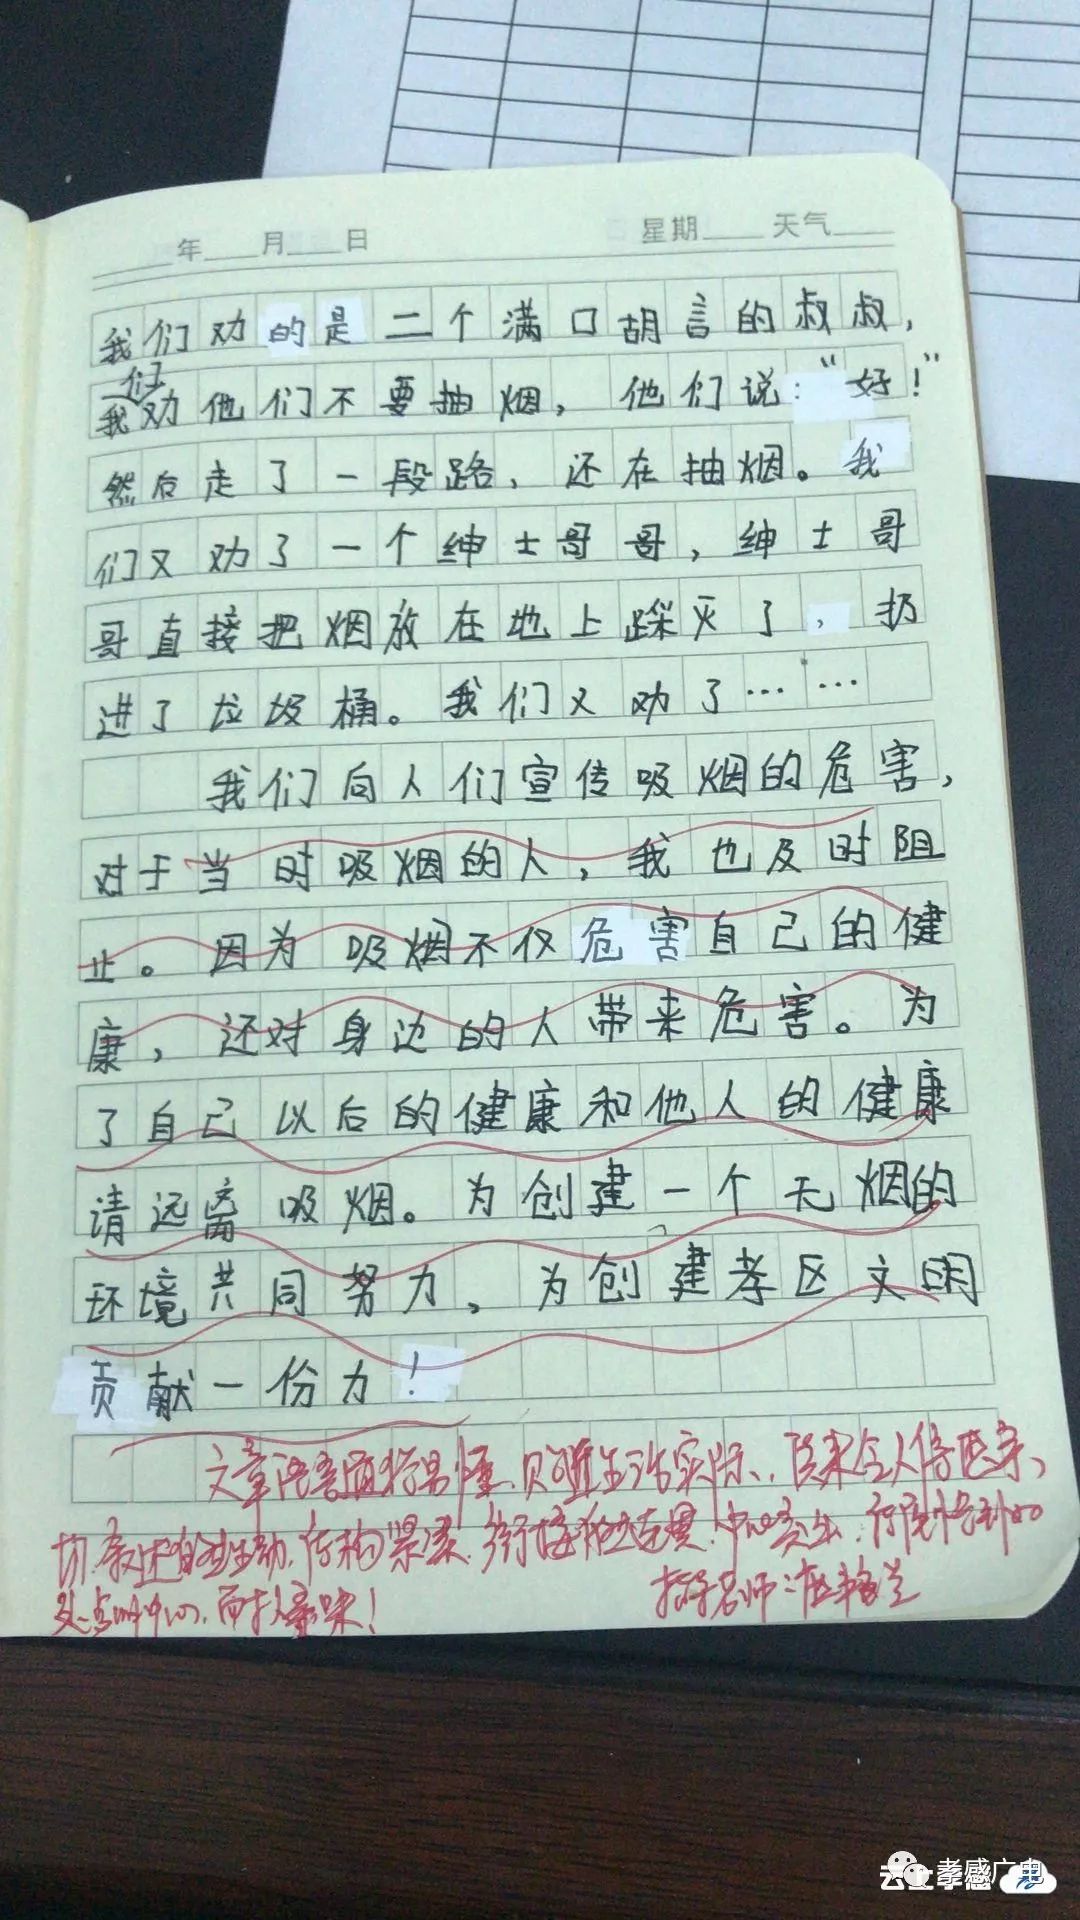 年 月 日 星期 天气
我们劝的是二个满口胡言的叔叔，
我们劝他们不要抽烟，他们说：“好！”
然后走了一段路，还在抽烟。我
们又劝了一个绅士哥哥，绅士哥
哥直接把烟放在地上踩灭了，扔
进了垃圾桶。我们又劝了……
我们向人们宣传吸烟的危害，
对于当时吸烟的人，我也及时阻
止。因为吸烟不仅危害自己的健
康，还对身边的人带来危害。为
了自己以后的健康和他人的健康
请远离吸烟。为创建一个无烟的
环境共同努力，为创建孝区文明
贡献一份力！
文章语言通俗易懂，贴近生活实际，读来令人倍感亲
切，叙述自然生动，结构紧凑，衔接自然连贯，中心突出，
点明中心，
指导老师：
云上孝感 孝感广电